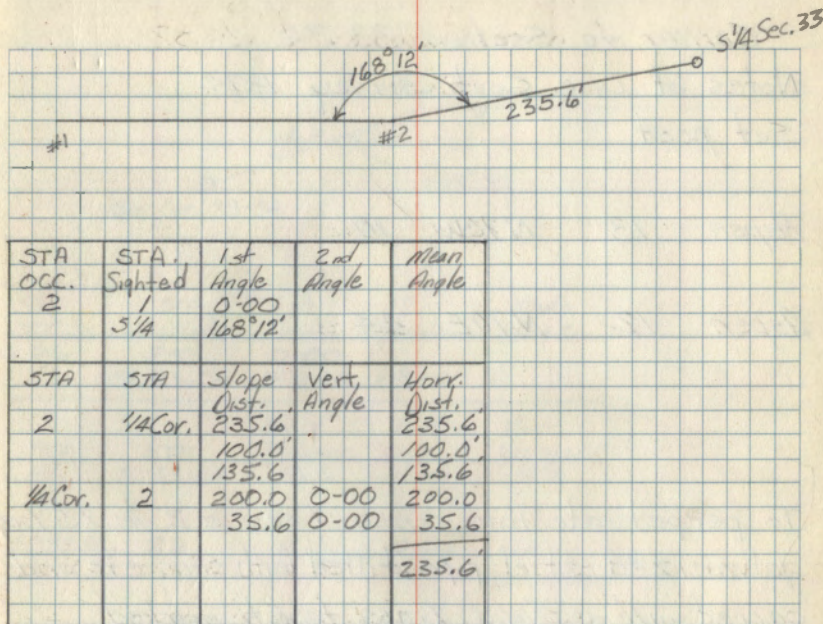 S 1/4 Sec. 33
168°12'
235.6'
#1
#2
STA OCC. STA. Sighted 1st Angle 2nd Angle Mean Angle
2 1 0-00
S 1/4 168°12'
STA STA Slope Dist. Vert. Angle Horr. Dist.
2 1/4 Cor. 235.6' 235.6'
100.0' 100.0'
135.6 135.6
1/4 Cor. 2 200.0 0-00 200.0
35.6 0-00 35.6
235.6'